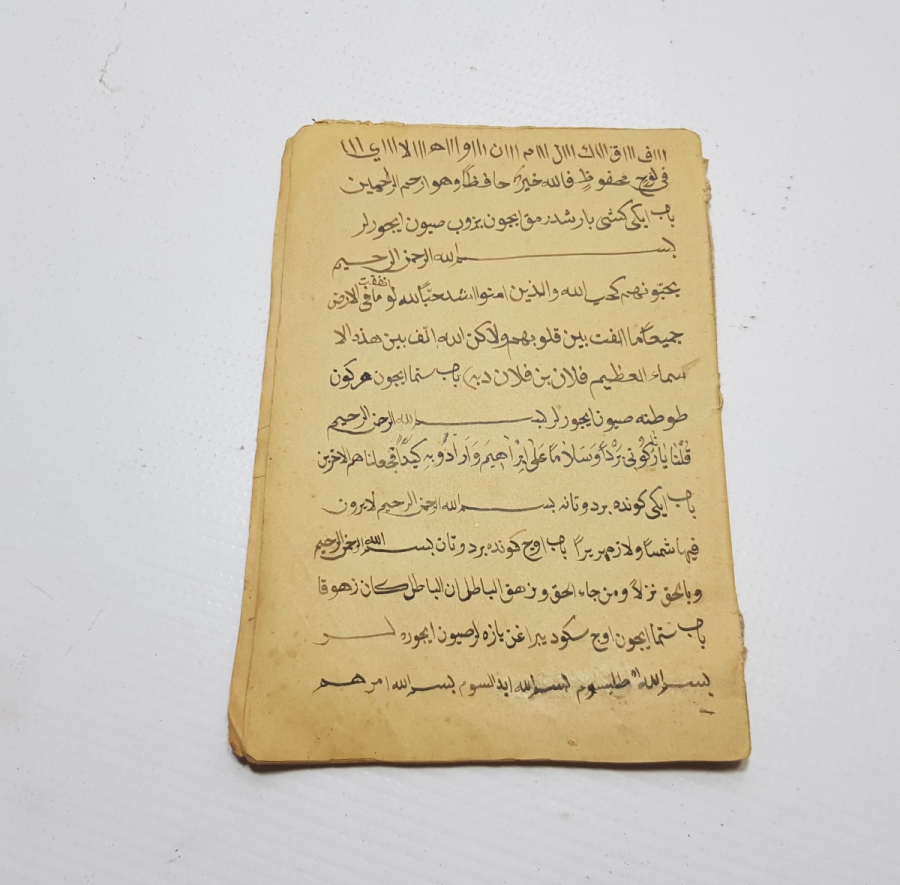 ااا ف ااا ق ااا ك ااا ل ااا م ااا ن ااا و ااا ه ااا لا ااا ي ااا
فى لوح محفوظ فالله خير حافظاً وهو ارحم الراحمين
باب ايكى كشى بارشدرمق ايجون يزوب صيون ايجورلر
بسم الله الرحمن الرحيم
يحبّونهم كحب الله والذين امنوا اشد حبّاً لله لو انفقت ما فى الارض
جميعاً ما الفت بين قلوبهم ولاكن الله الّف بين هذه الا
سماء العظيم فلان بن فلان باب ستما ايجون هركون
طوطنه صيون ايجورلر بسم الله الرحمن الرحيم
قُلْنَا يَا نَارُ كُونِى بَرْداً وَسَلَامًا عَلَى اِبْرٰاهِيمَ وَاَرَادُو بِهِ كَيْداً فجعلناهم الاخرين
باب ايكى كونده بر دوتانه بسم الله الرحمن الرحيم لا يرون
فيها شمسا ولا زمهريراً باب اوج كونده بر دوتان بسم الله الرحمن الرحيم
وبالحق نزلاً ومن جاء الحق وزهق الباطل ان الباطل كان زهوقا
باب ستما ايجون اوج سكود يبراغن يازه لر صيون ايجوره
بسم الله بسم الله بسم الله